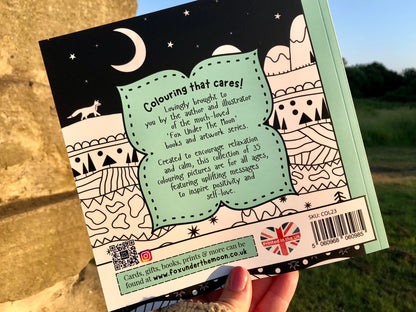 Colouring that cares!
Lovingly brought to
you by the author and illustrator
of the much-loved
'Fox Under The Moon'
books and artwork series.
Created to encourage relaxation
and calm, this collection of 35
colouring pictures are for all ages,
featuring uplifting messages
to inspire positivity and
self-love.
Cards, gifts, books, prints & more can be
found at www.foxunderthemoon.co.uk
Printed in the UK
SKU: COL23
5 060968 060985